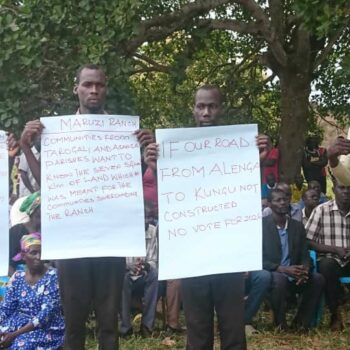 MARUZI RANCH
COMMUNITIES FROM
TAROGALI AND AGWICA
PARISHES WANT TO
KNOW THE SEVEN SQ
KM OF LAND WHICH
WAS MEANT FOR THE
COMMUNITIES SURROUNDING
THE RANCH
IF OUR ROAD
FROM ALENGA
TO KUNGU NOT
CONSTRUCTED
NO VOTE FOR 2026